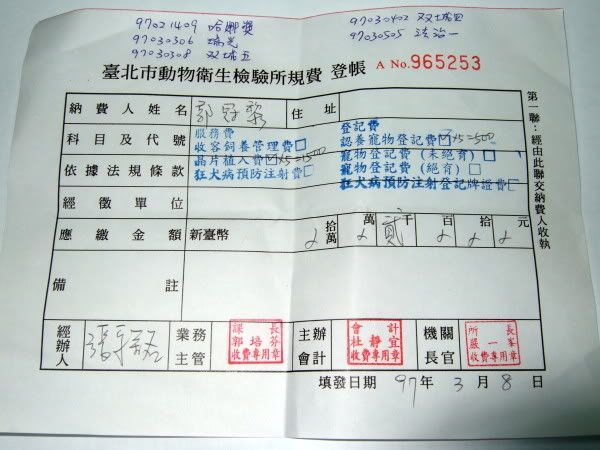 97021409 哈娜獎 97030402 双城四
97030306 瑞光 97030505 法治一
97030308 双城五
臺北市動物衛生檢驗所規費 登帳 A No.965253
第一聯：經由此聯交納費人收執
納費人姓名 郭冠 住址
科目及代號 服務費 登記費
收容飼養管理費□ 認養寵物登記費☑×5=500
晶片植入費☑×5=1500 寵物登記費(未絕育)□
依據法規條款 狂犬病預防注射費□ 寵物登記費(絕育)□
狂犬病預防注射登記牌證費□
經徵單位
應繳金額 新臺幣 拾萬 萬 貳千 百 拾 元
備註
經辦人 張 業務主管 課長 郭培芬 收費專用章 主辦會計 會計 杜靜宜 收費專用章 機關長官 所長 嚴一峯 收費專用章
填發日期 97年 3月 8日